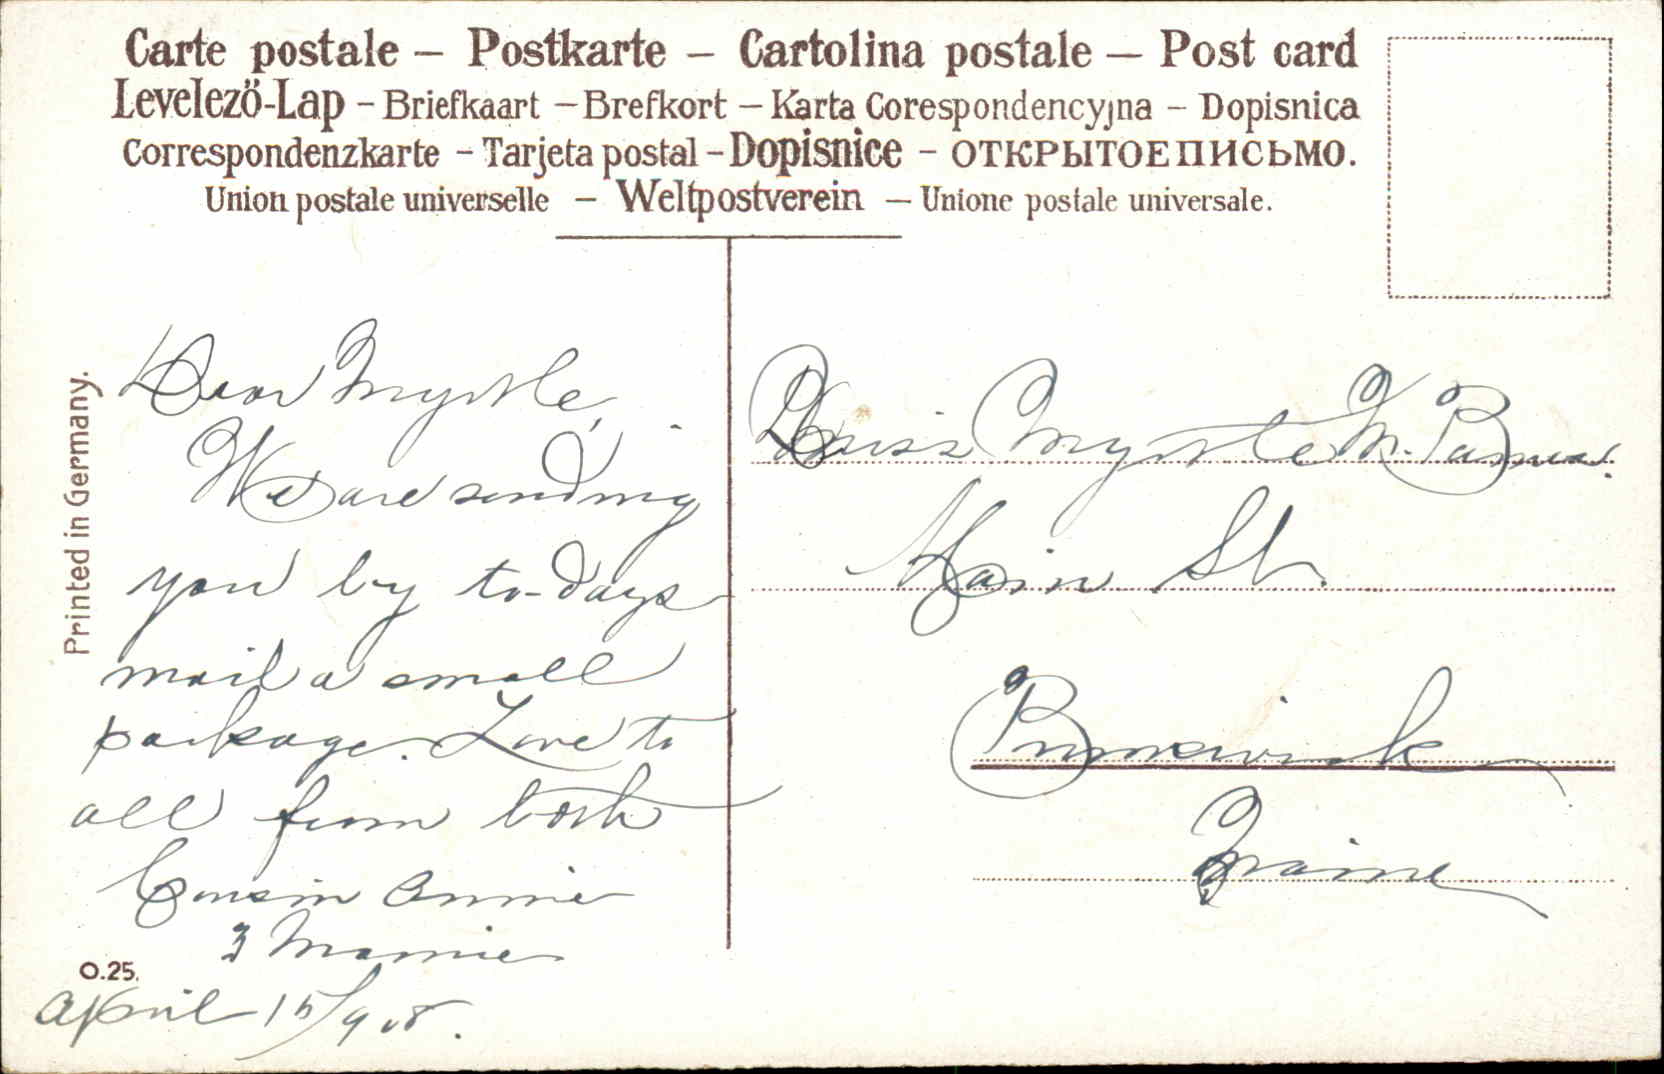 Carte postale – Postkarte – Cartolina postale – Post card
Levelező-Lap – Briefkaart – Brefkort – Karta Corespondencyjna – Dopisnica
Correspondenzkarte – Tarjeta postal – Dopisnice – ОТКРЫТОЕ ПИСЬМО.
Union postale universelle – Weltpostverein – Unione postale universale.
Printed in Germany.
Dear Myrtle,
We are sending
you by to-days
mail a small
package. Love to
all from both
Cousin Annie
& Mamie
O.25.
April 15/908.
Miss Myrtle M.
Main St.
Brunswick
Maine